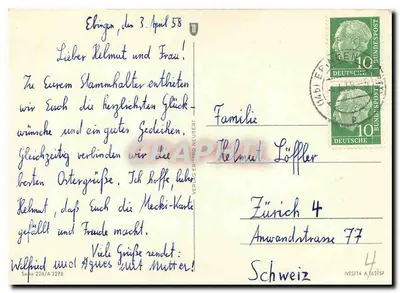 Ebingen, den 3. April 58
Lieber Helmut und Frau!
Zu Eurem Stammhalter entbieten
wir Euch die herzlichsten Glück-
wünsche und ein gutes Gedeihen.
Gleichzeitig verbinden wir die
besten Ostergrüße. Ich hoffe, lieber
Helmut, daß Euch die Mecki-Karte
gefällt und Freude macht.
Viele Grüße sendet:
Wilfried und Agnes mit Mutter!
Serie 226/A 2276
10
DEUTSCHE
BUNDESPOST
10
DEUTSCHE
BUNDESPOST
(14b) EBINGEN
Familie
Helmut Löffler
Zürich 4
Anwandstrasse 77
Schweiz
4